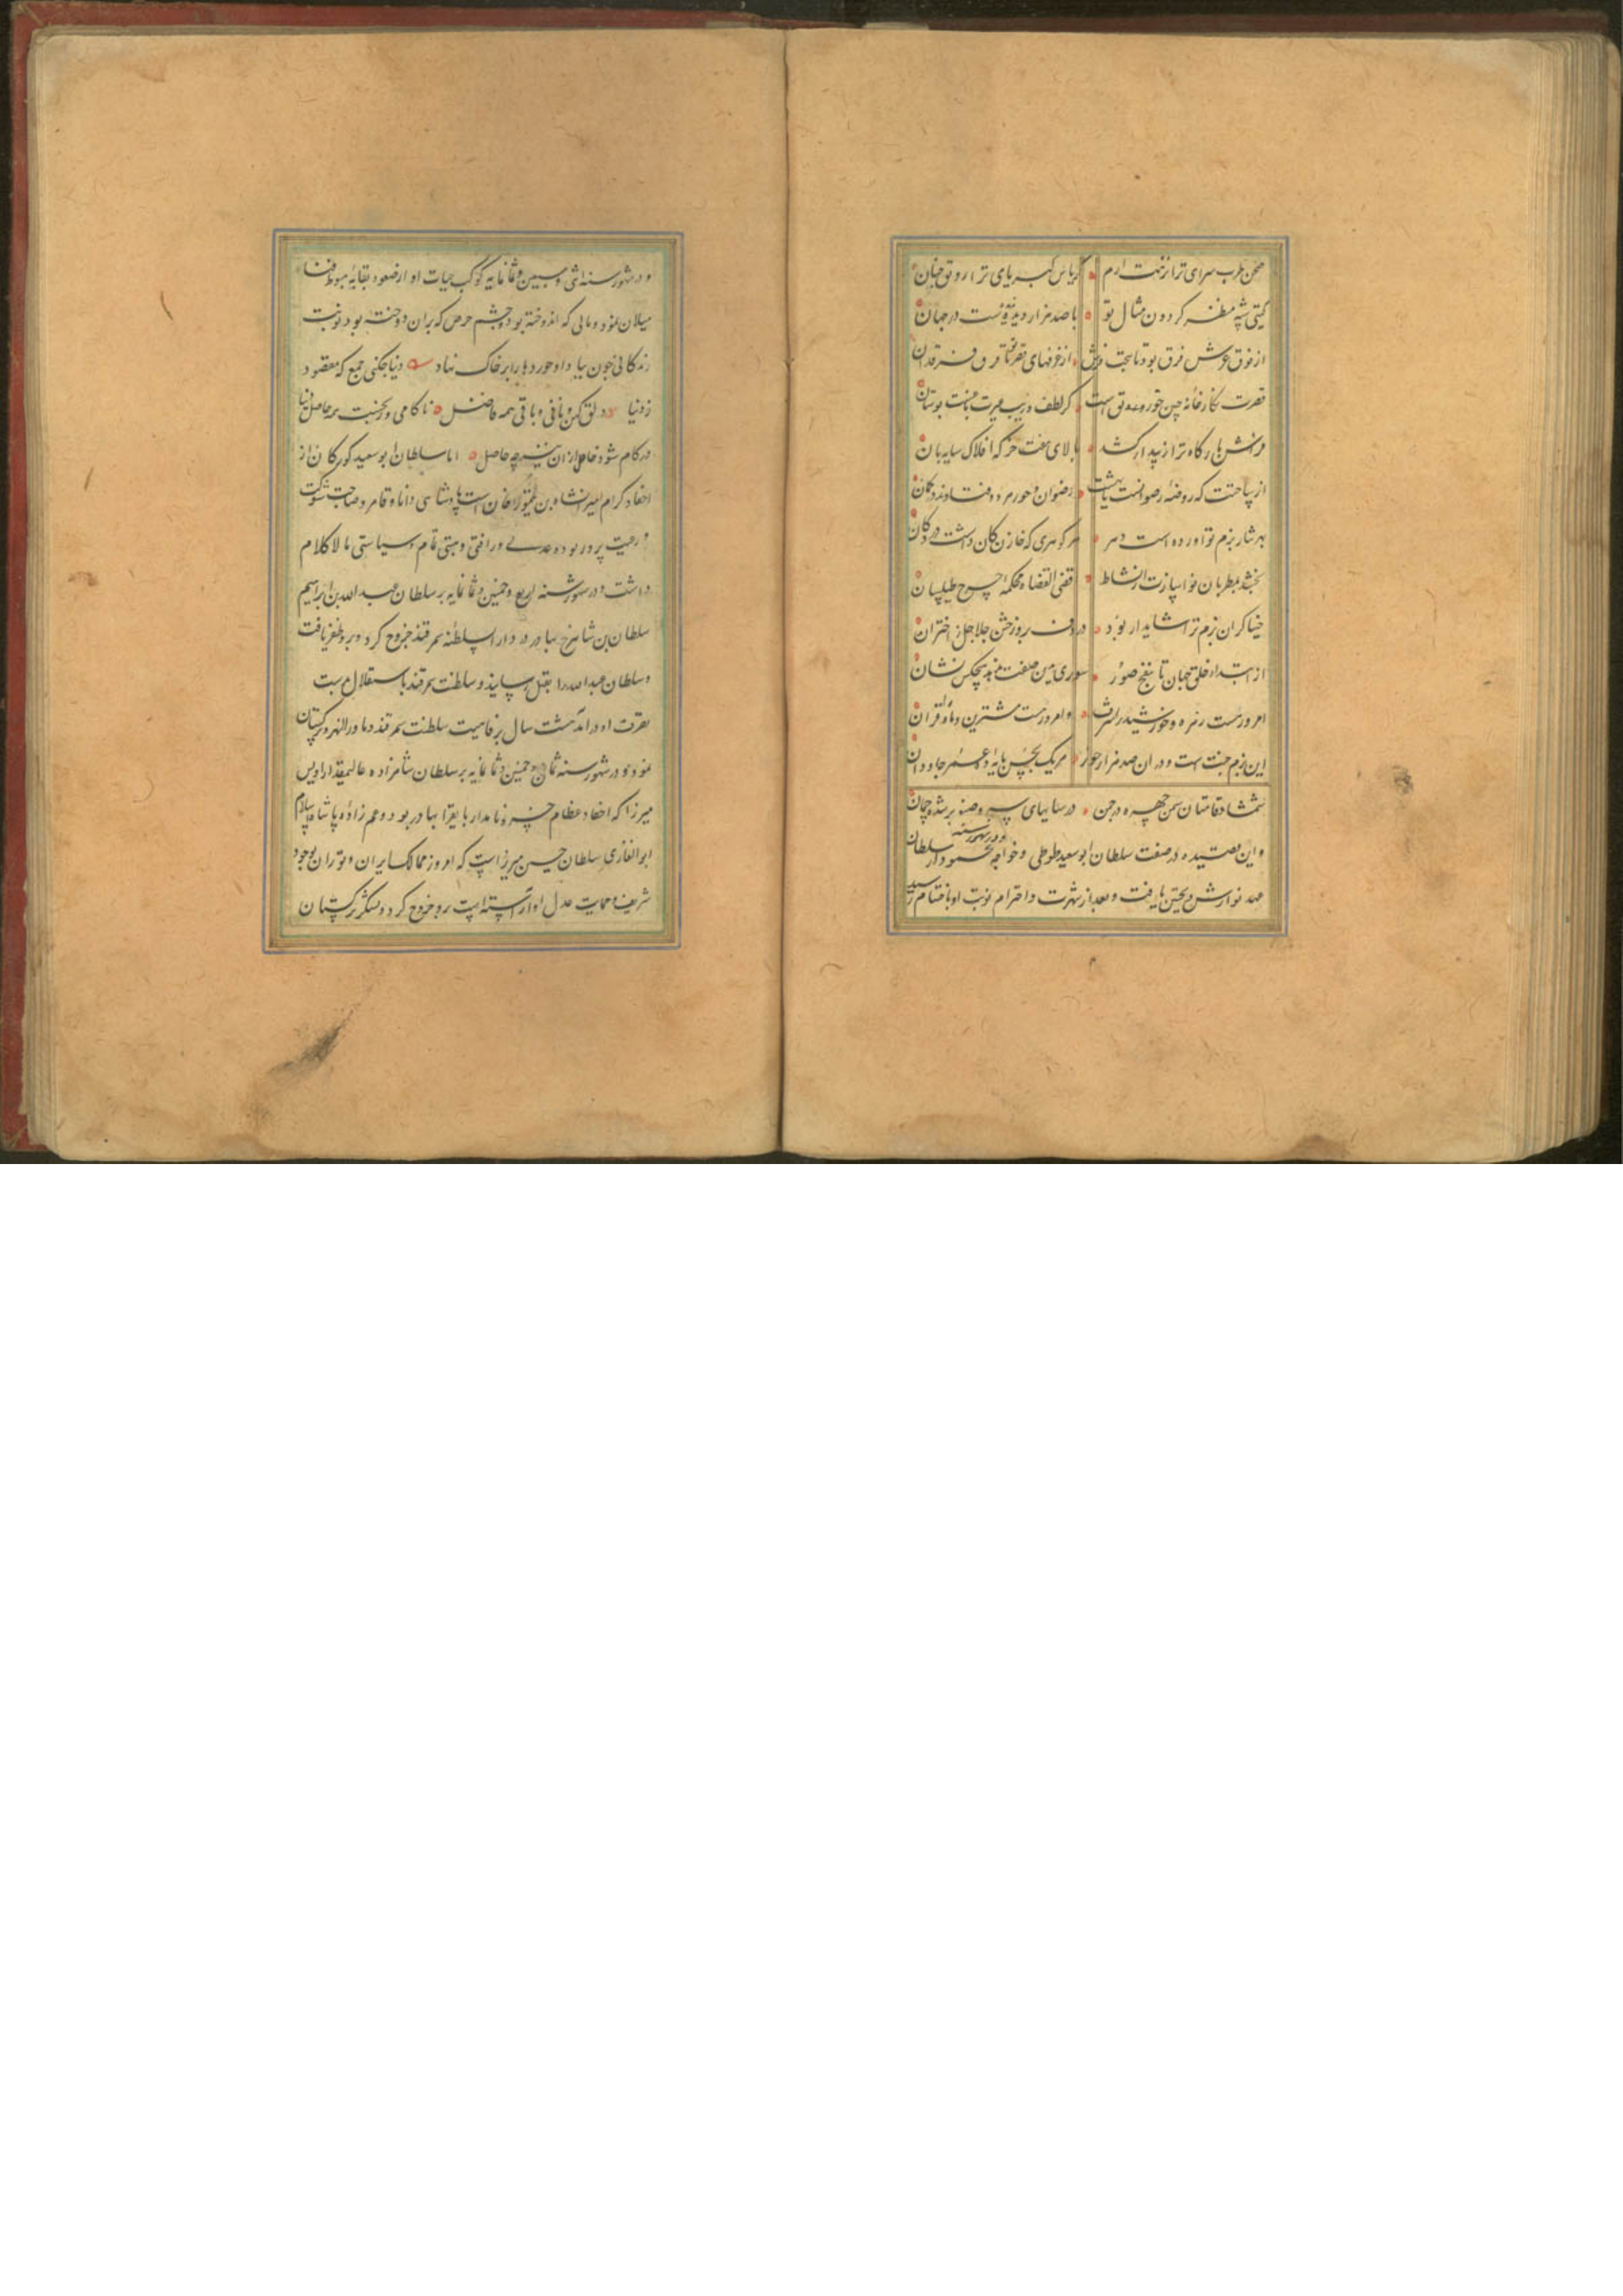 صحن طرب سرای ترا نزهت ارم کریاس کبریای ترا رونق جنان
کیتی شه مظفر کردون مثال تو با صد هزار دیده ندیدست در جهان
از فوق عرش فرق بود تا بتحت از غرفهای قصر تو تا فرق فرقدان
قصرت نکارخانه چین خورنق است کز لطف و زیب بوستان
فراش بارکاه ترا زیبد ار کشد بالای هفت خرکه افلاک سایه بان
از ساحتت که روضه رضوانست یا بهشت رضوان و حور هر دو فتادند در کمان
بهر نثار بزم تو آورده است دهر هر کوهری که خازن کان داشت در دکان
بخشد بمطربان نواسازت از نشاط قاضی القضاه محکمه چرخ طیلسان
خنیاکران بزم ترا شاید ار بود در دف بروز جشن جلاجل ز اختران
از ابتداء خلق جهان تا بنفخ صور سوری بدین صفت ندهد هیچکس نشان
امروز هست زهره و خورشید را شرف و امروز هست مشتری و ماه را قران
این بزم جنت است و در آن صد هزار حور هر یک بحسن مایه عمر جاودان
شمشاد قامتان سمن چهره در چمن در سایهای سرو صنوبر شده چمان
و این قصیده در صفت سلطان ابوسعید طوطی و خواجه محمود در شهور سنه سلطان
مهد نوارش و تحسین یافت و بعد از شهرت و احترام نوبت او باختتام رسید
و در شهور سنه اثنی و سبعین و ثمانمایه کوکب حیات او از صعود بقا به هبوط فنا
میلان نمود و مالی که اندوخته بود و چشم حرص که بران دوخته بود نوبت
زندکانی چون بباد داد خورد ها را برابر خاک نهاد دنیا چکنی جمع که مقصود
ز دنیا دلق کهن و نانی و باقی همه فاضل ناکامی و رنجست همه حاصل دنیا
در کام شود حاصل ازان نیز چه حاصل اما سلطان ابوسعید کورکان از
احفاد کرام امیرانشاه بن تیمور خان است پادشاهی دانا و قاهر و صاحب شوکت
و رعیت پرور بوده عدلی و رأفتی و هیبتی تمام و سیاستی مالاکلام
داشت و در شهور سنه اربع و خمسین و ثمانمایه بر سلطان عبد الله بن ابراهیم
سلطان بن شاهرخ بهادر در دار السلطنه سمرقند خروج کرد و برو ظفر یافت
و سلطان عبدالله را بقتل رسانید و سلطنت سمرقند باستقلال بدست
تصرف او درآمد هشت سال برفاهیت سلطنت سمرقند و ماوراالنهر و ترکستان
نمود و در شهور سنه ثمان و خمسین و ثمانمایه بر سلطان شاهزاده عالیمقدار اویس
میرزا که احفاد عظام خسرو نامدار بایقرا بهادر بود و عم زاده پادشاه اسلام
ابوالغازی سلطان حسین میرزاست که امروز ممالک ایران و توران بوجود
شریف و حمایت عدل او آراسته است برو خروج کرد و لشکر ترکستان